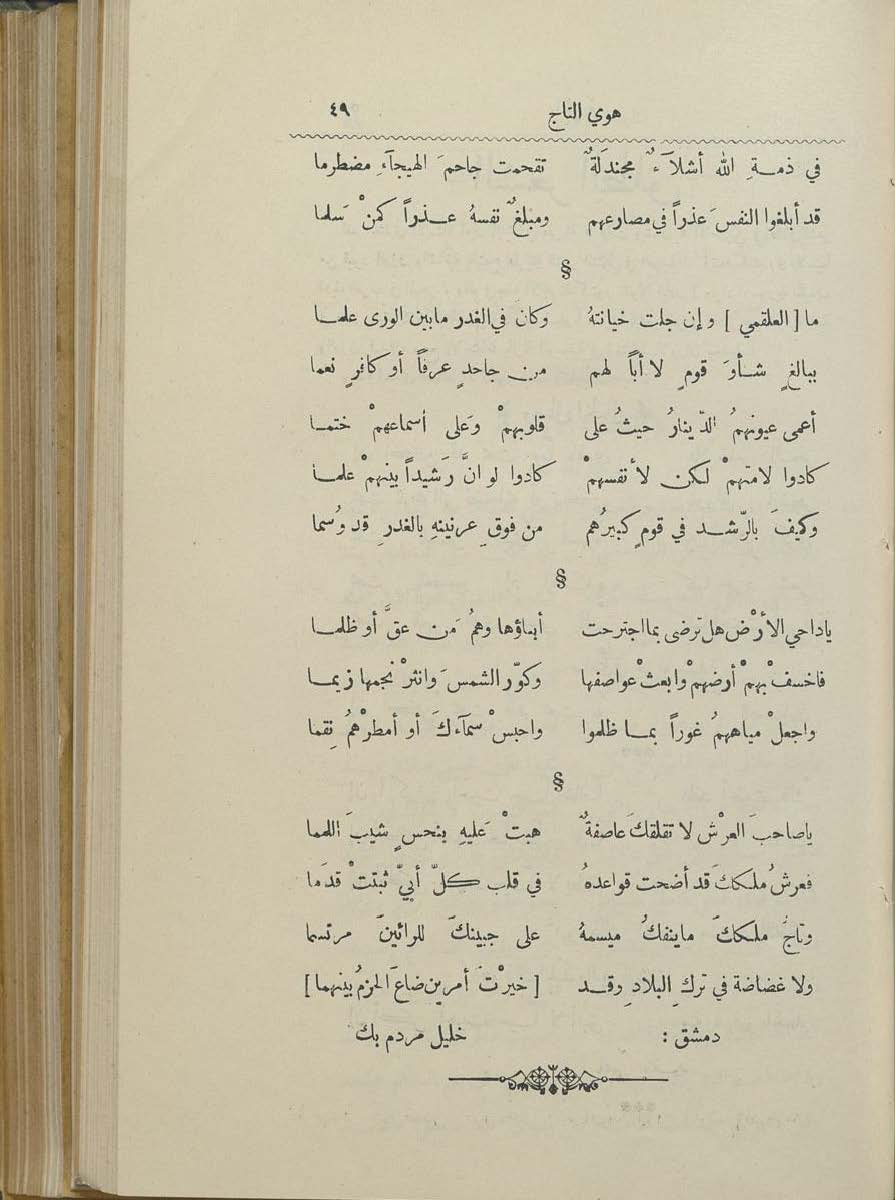 هوي التاج ٤٩
في ذمـة ِ الله أشلآءٌ مجندَلةٌ تقحمت جاحمَ الهيجآءِ مضطرما
قد أبلغوا النفسَ عذراً في مصارعهم ومبلغٌ نفسهُ عـذراً كمنْ سَلما
§
ما [ العلقمي ] وإن جلت خيانتهُ وكان في الغدر ما بين الورى علما
ببالغٍ شـأوَ قومٍ لا أباً لهم من جاحدٍ عرفاً أو كافرٍ نعما
أعمى عيونهمُ الدّينارُ حيثُ على قلوبهمْ وَعلى أسماعهمْ ختما
كادوا لامتهمْ لكن لأنفسهمْ كادوا لو انَّ رَشيداً بينهمْ علما
وكيفَ بالرّشد في قومٍ كبيرُهم من فوقِ عرنينهِ بالغدرِ قد وُسما
§
ياداحي الأرْض هل ترضى بما اجترحت أبناؤها وهمُ مَن عقَّ أو ظلما
فاخسفْ بهمْ أرضهمْ وابعثْ عواصفها وكوّر الشمسَ وانثرْ نجمها زيما
واجعلْ مياههمُ غوراً بمـا ظلموا واحبسْ سمآءكَ أو أمطرْهمُ نِقما
§
ياصاحبَ العرْش لا تقلقكَ عاصفةٌ هبتْ عَليهِ بنحسٍ شيبَ اللمما
فعرشُ ملككَ قد أضحت قواعدهُ في قلب كلّ أبيّ ثبتتْ قدَما
وتاجُ ملككَ ماينفكُ ميسمهُ على جبينكَ للرائينَ مرتسما
ولا غضاضة في تركِ البلادِ وقـد [ خيرْتَ أمرين ضاعَ الحزمُ بينهما ]
دمشق : خليل مردم بك